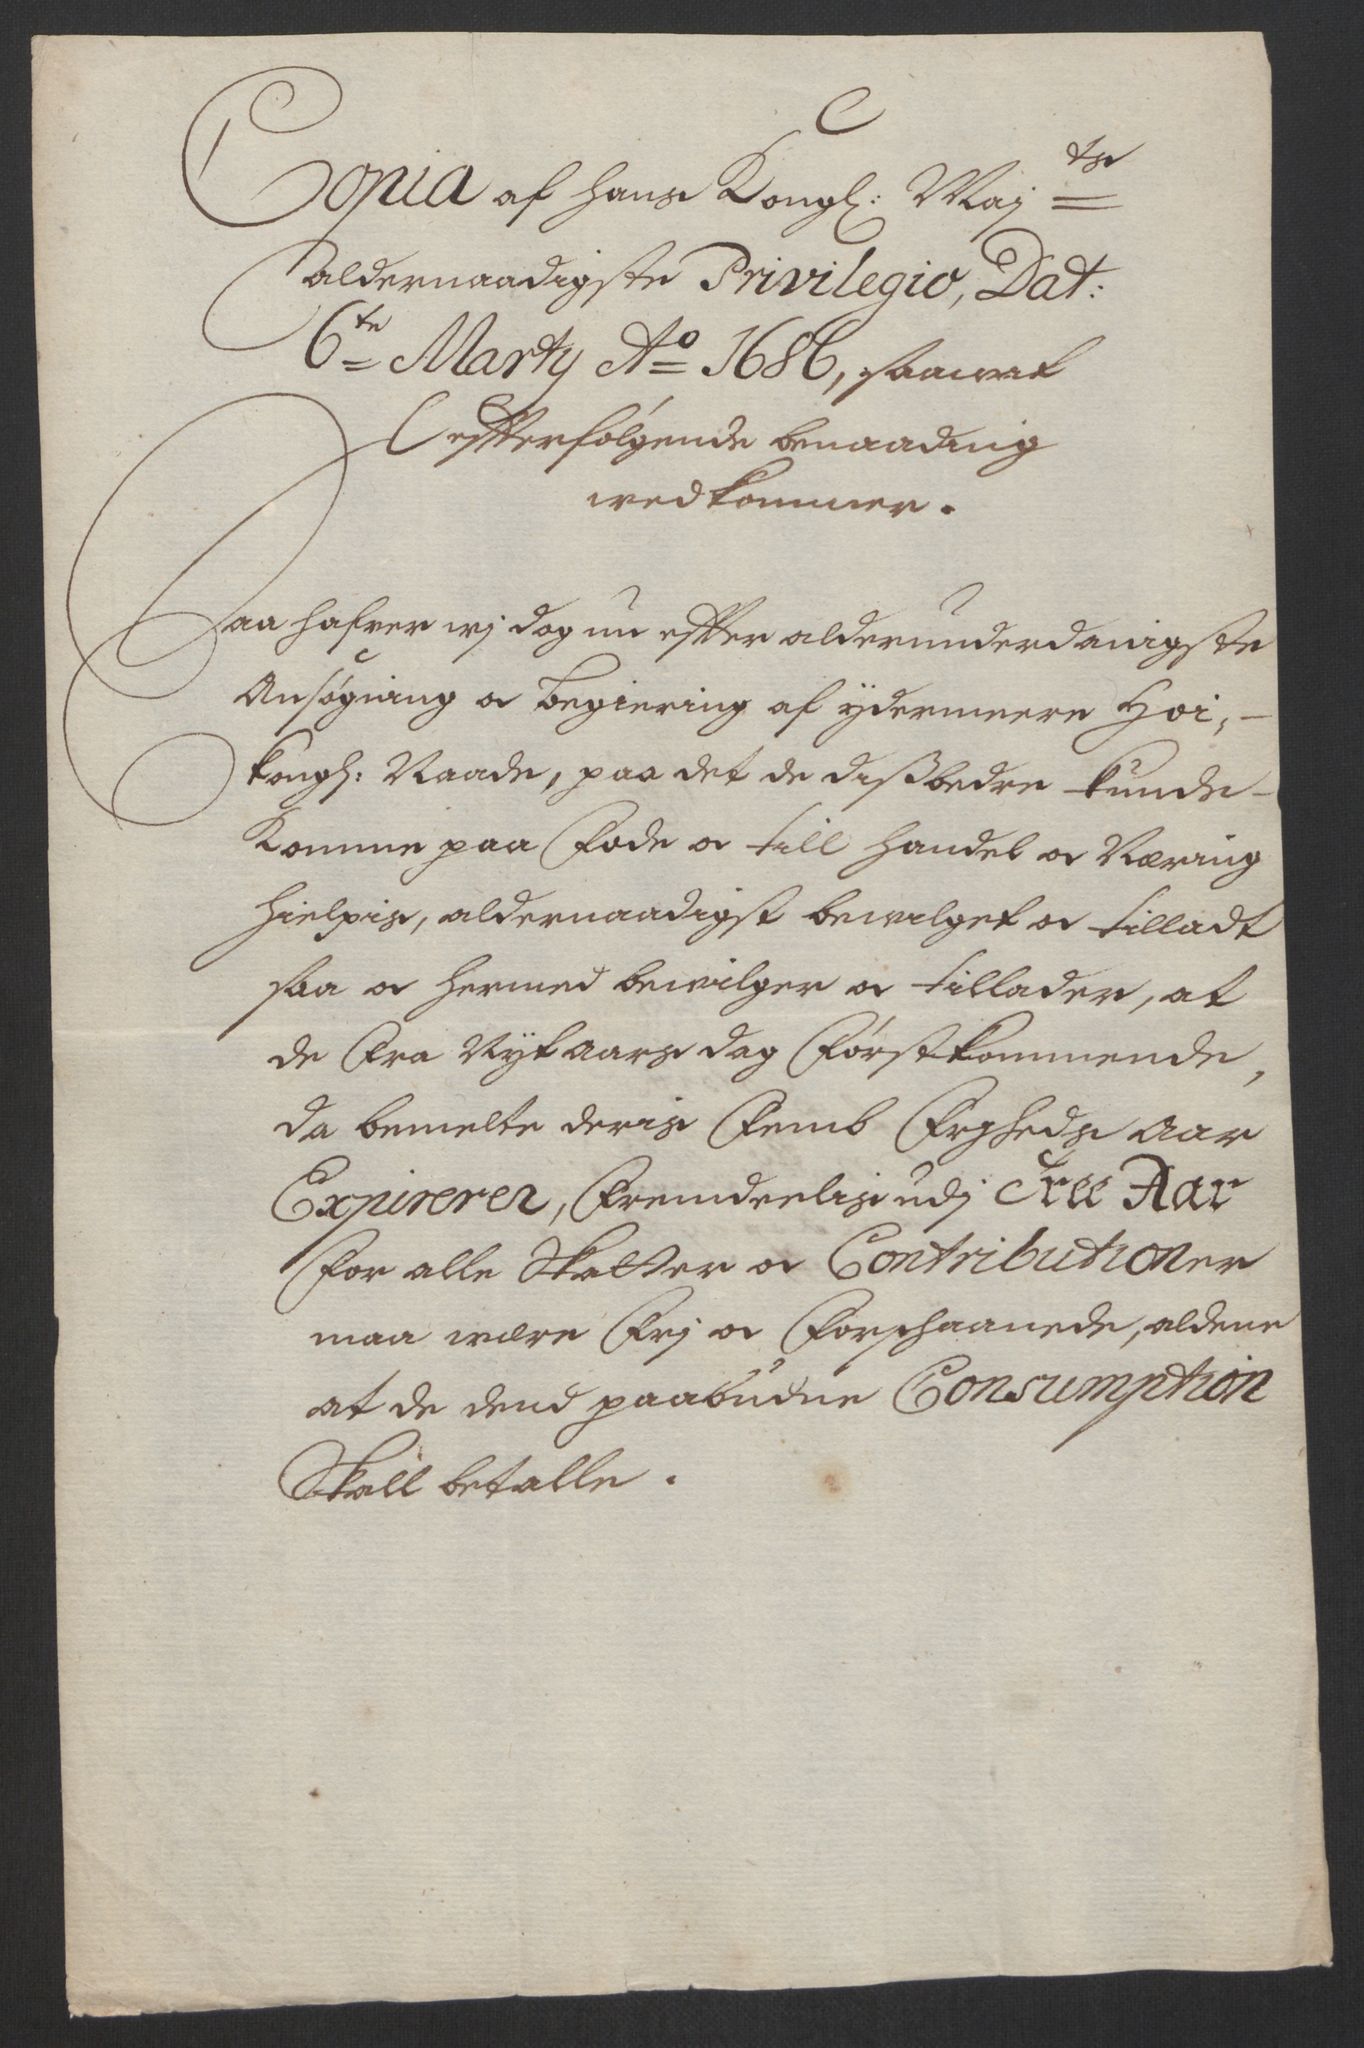 Copia af hans Kongl: Maj ts
aldernaadigste Privilegio, Dat:
6te Marty Ao 1686, saawit
effterfølgende benaading
wedkommer.
Saa hafver wj dog nu effter alderunderdanigste
Ansøgning oc begiering af ÿdermeere Høi,-
kongl: Naade, paa det de dißbedre kunde
Komme paa Fode oc till Handel oc Næring
hielpis, aldernaadigst bewilget oc tilladt
saa oc hermed bewilger oc tillader, at
de Fra Nytaars dag Førstkommende,
da bemelte deris Femb Frjheds Aar
Expirerer, Fremdeelis udj Tree Aar
For alle Skatter oc Contributioner
maa were Frj oc Forschaanede, aldene
at de dend paabudne Consumption
Skall betalle.